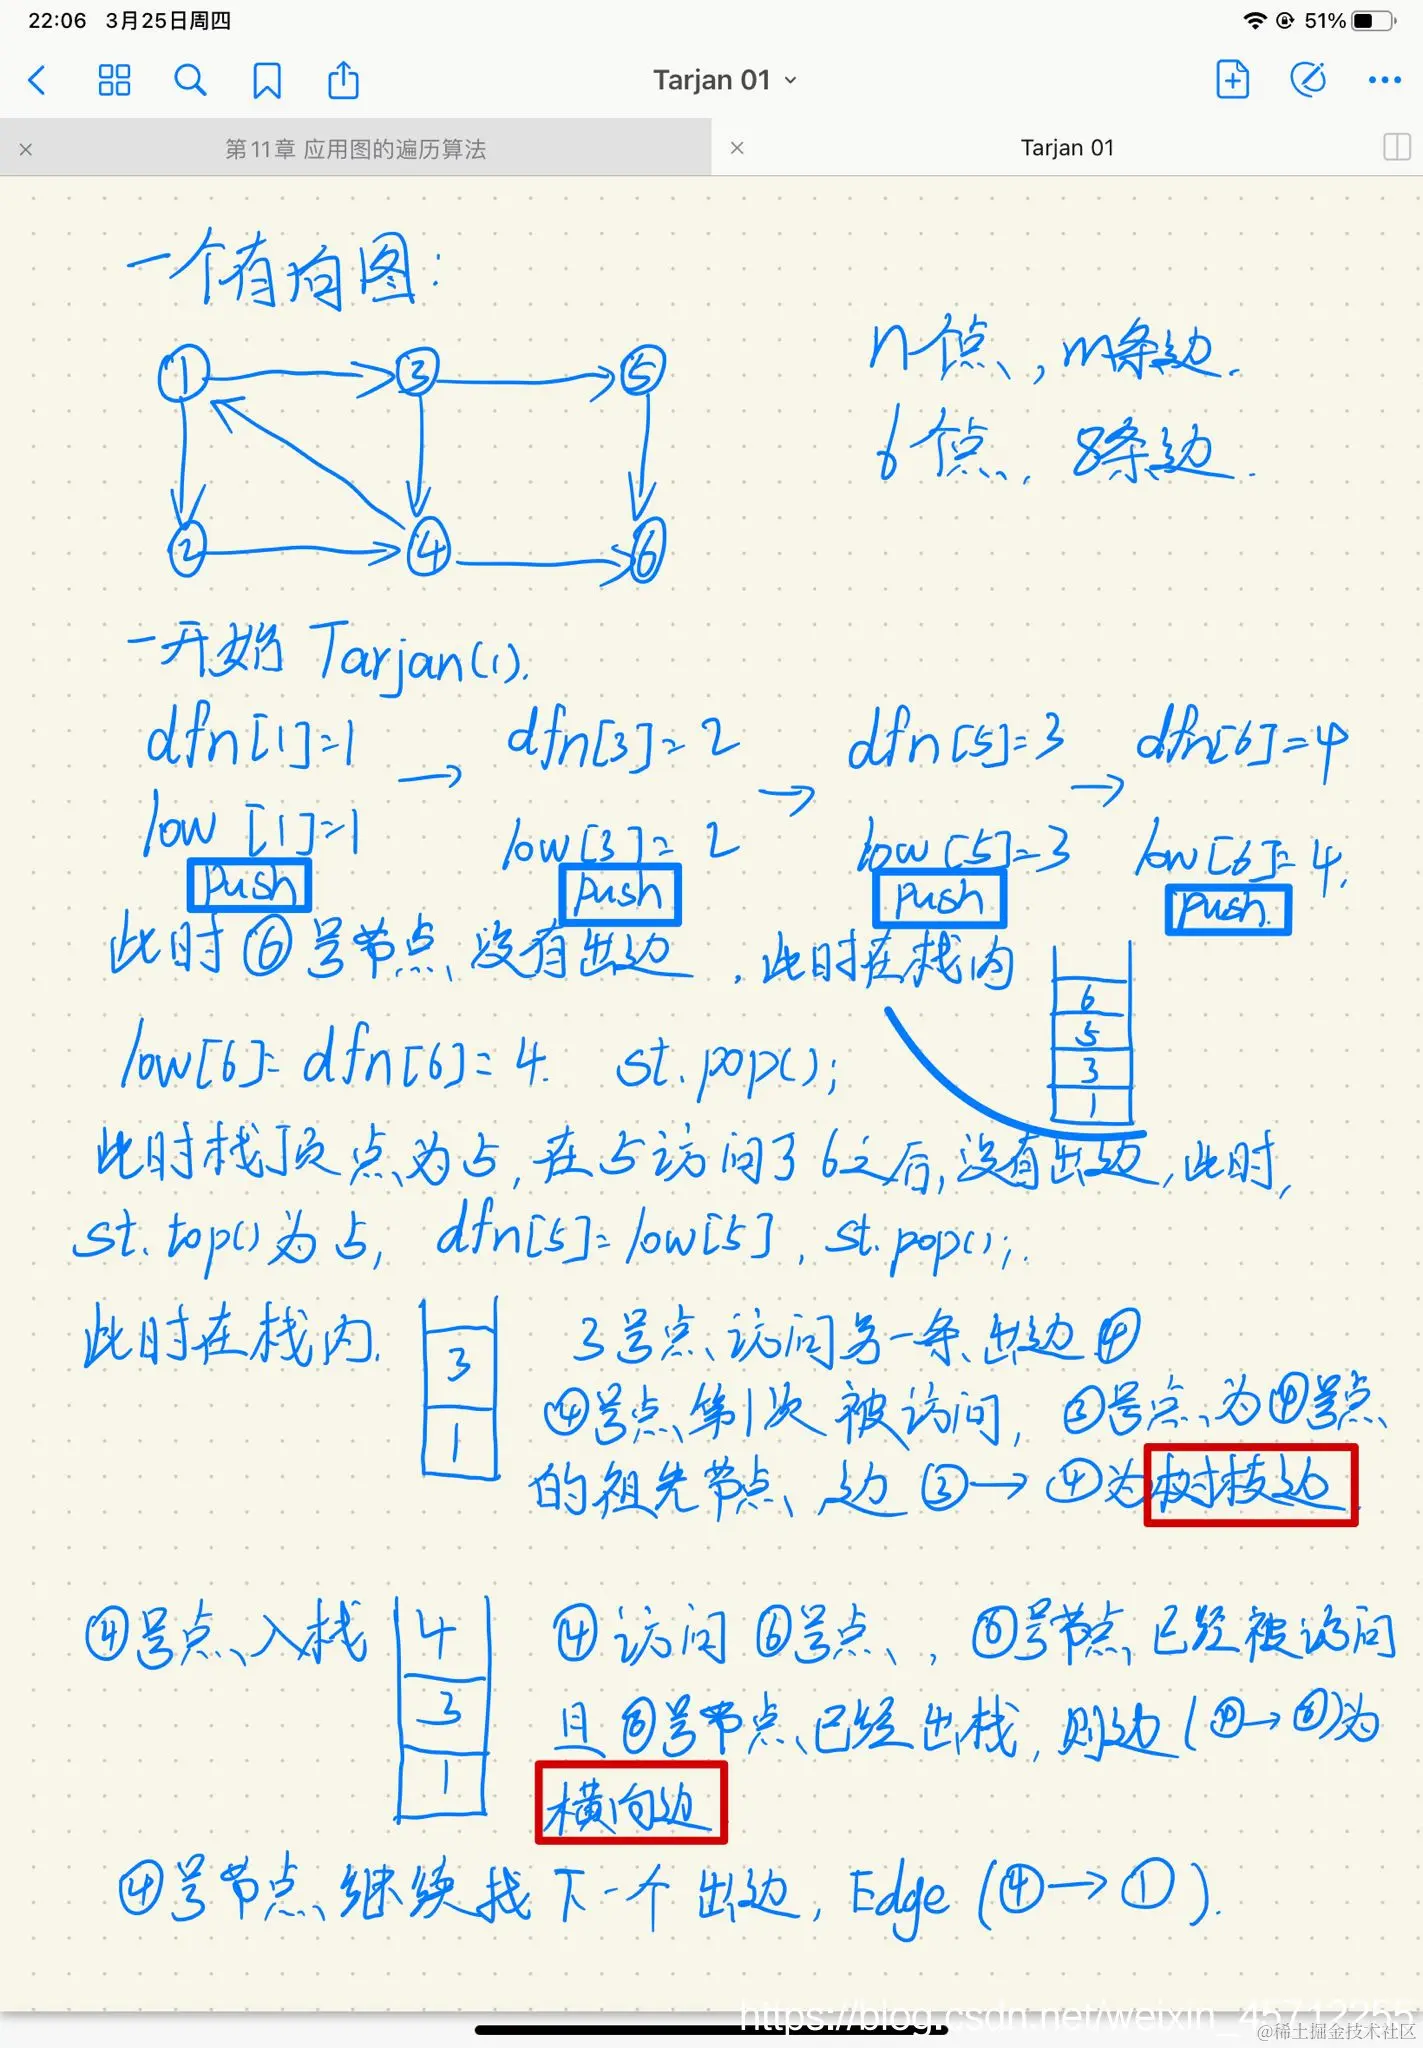 22:06 3月25日周四
51%
Tarjan 01
第11章 应用图的遍历算法
Tarjan 01
一个有向图:
n个点, m条边.
6个点, 8条边.
① ③ ⑤
② ④ ⑥
一开始 Tarjan(1).
dfn[1]=1 → dfn[3]=2 → dfn[5]=3 → dfn[6]=4
low[1]=1 low[3]=2 low[5]=3 low[6]=4.
push push push push.
此时⑥号节点没有出边, 此时在栈内
6
5
3
1
low[6]=dfn[6]=4. st.pop();
此时栈顶点为5, 在5访问了6之后, 没有出边, 此时,
st.top()为5, dfn[5]=low[5], st.pop();.
此时在栈内.
3
1
3号点访问另一条出边④
④号点第1次被访问, ③号点为④号点
的祖先节点, 边③→④为树枝边.
④号点入栈
4
3
1
④访问⑥号点, ⑥号节点已经被访问
且⑥号节点已经出栈, 则边(④→⑥)为
横向边
④号节点继续找下一个出边, Edge(④→①).
https://blog.csdn.net/weixin_45712255
@稀土掘金技术社区